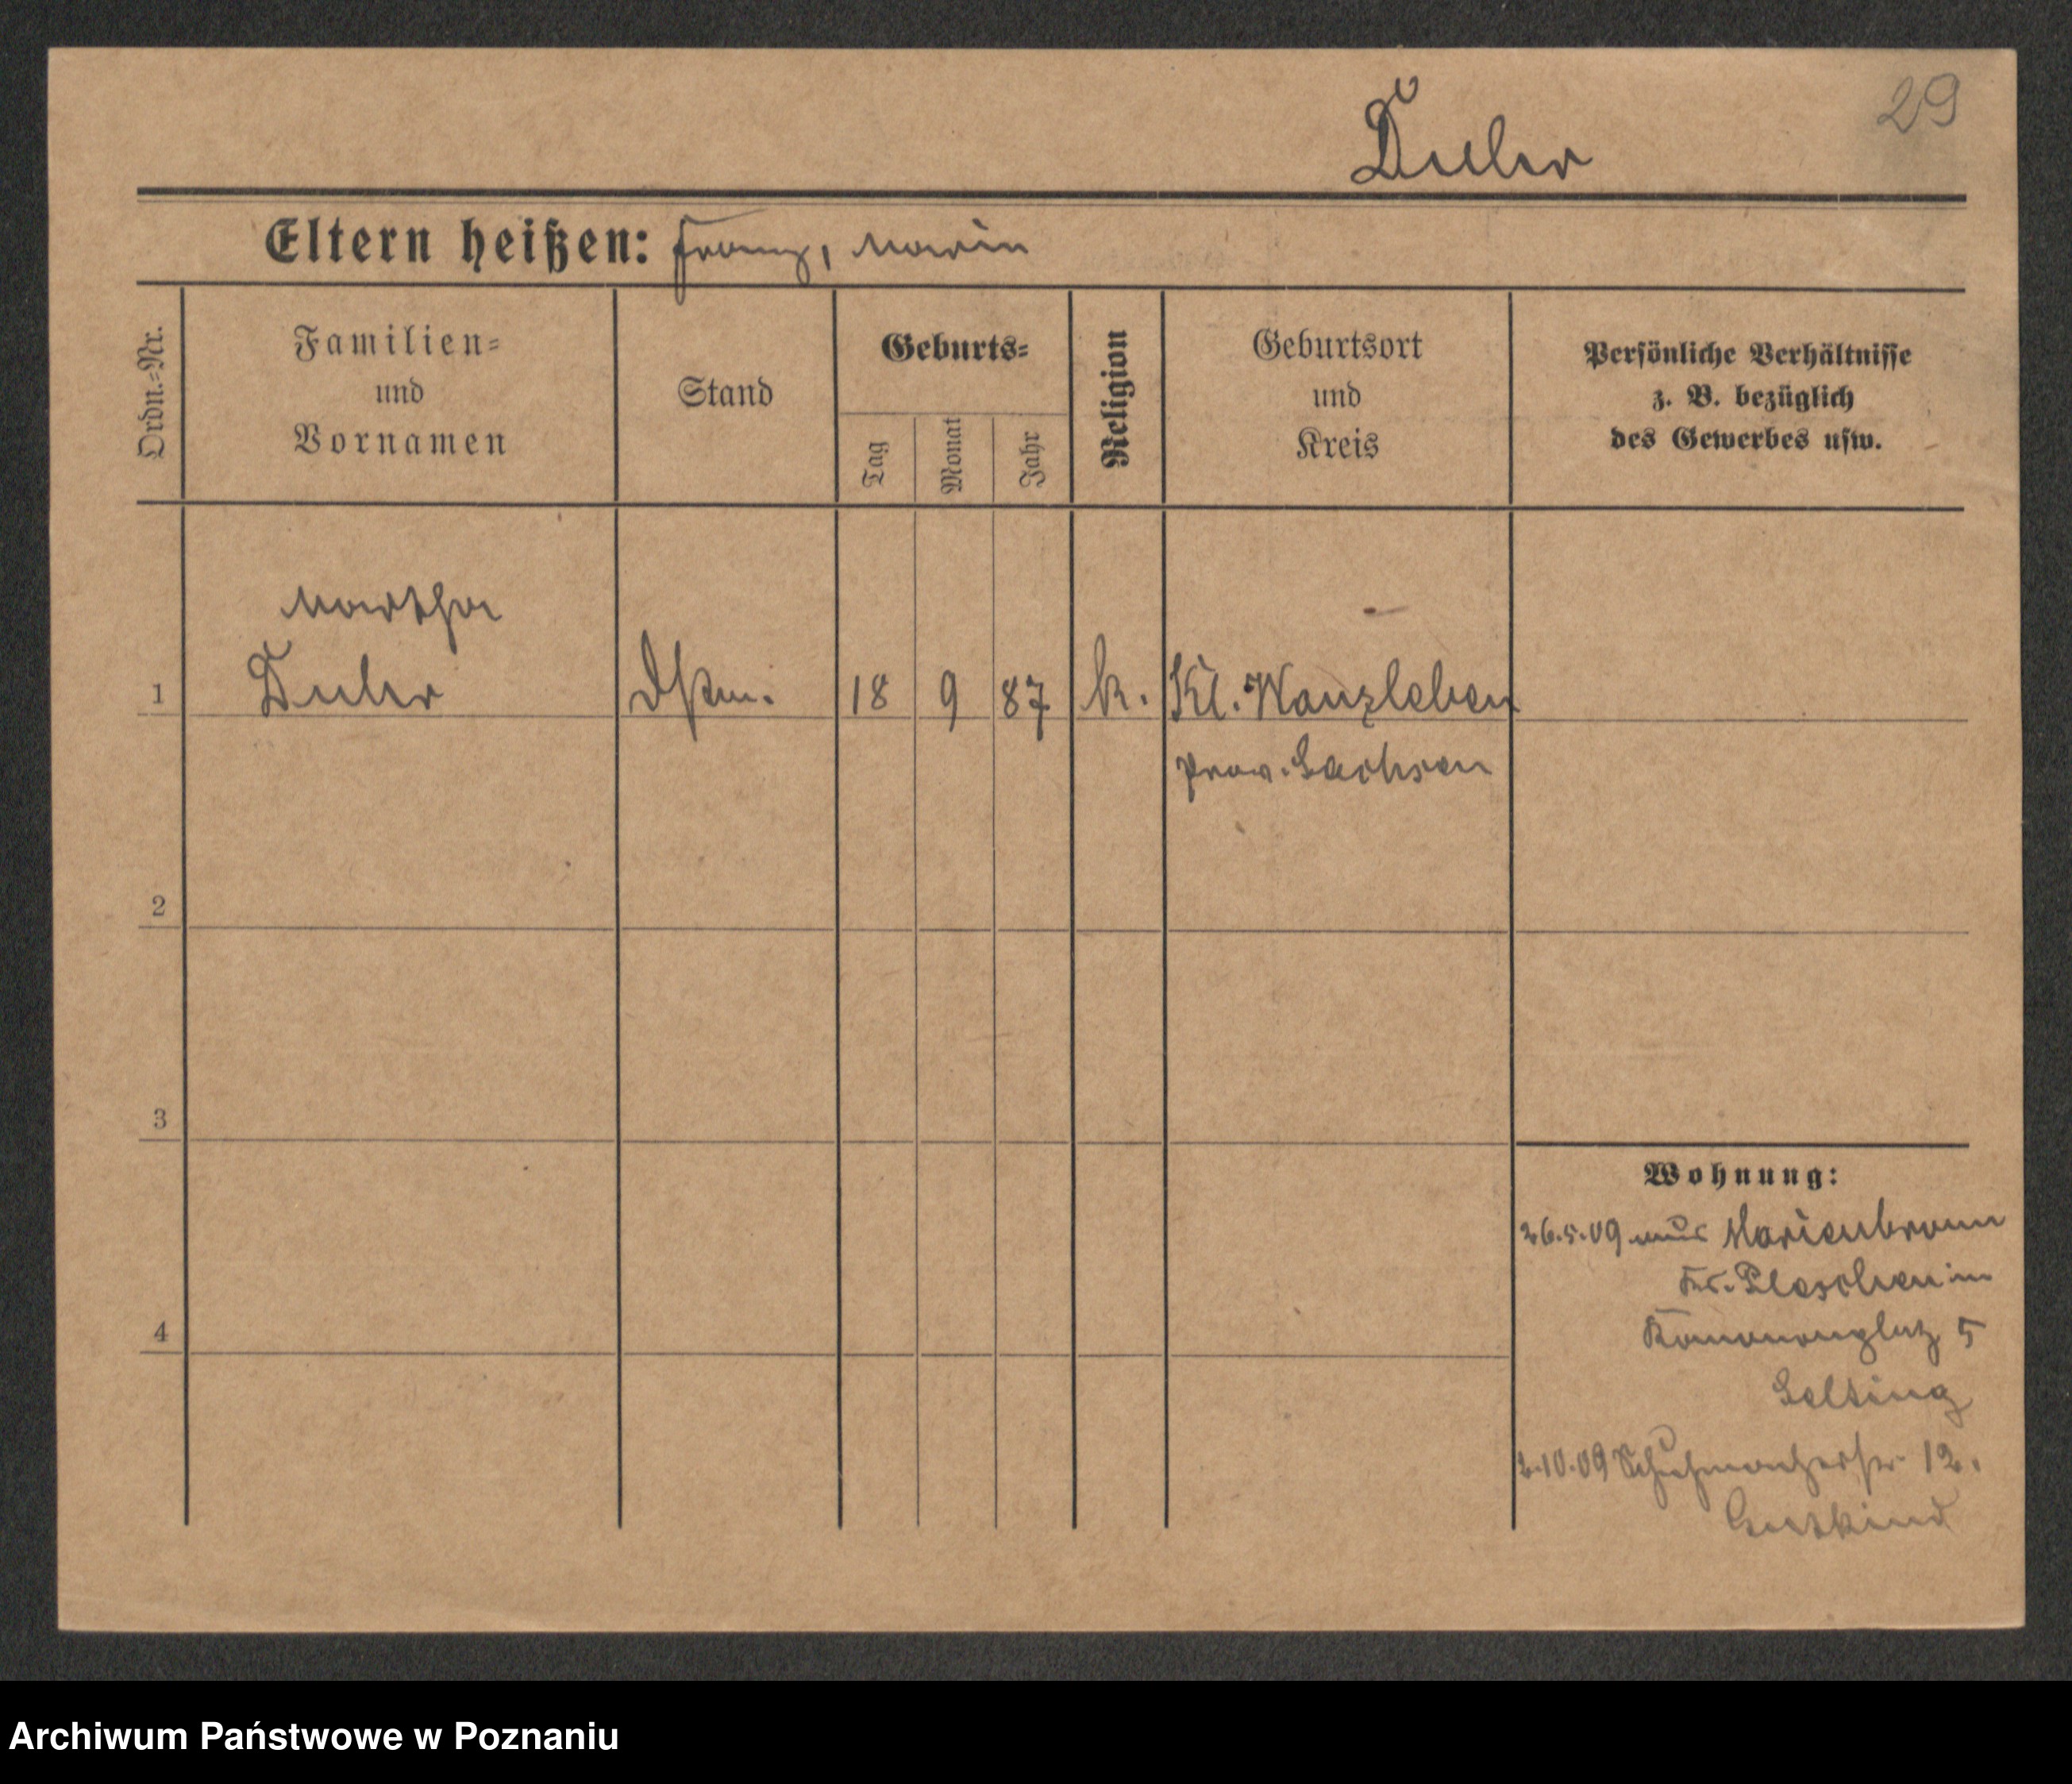 29
Duhr
Eltern heißen: Franz, Marie
Ordn.=Nr.
Familien=
und
Vornamen
Stand
Geburts=
Tag
Monat
Jahr
Religion
Geburtsort
und
Kreis
Persönliche Verhältnisse
z. B. bezüglich
des Gewerbes usw.
Martha
1 18 9 87 k. Kl. Wanzleben
Prov. Sachsen
2
3
4
Wohnung:
26.5.09 aus Marienbronn
Kr. Pleschen in
5
Selting
2.10.09 Schuhmacherstr 12.